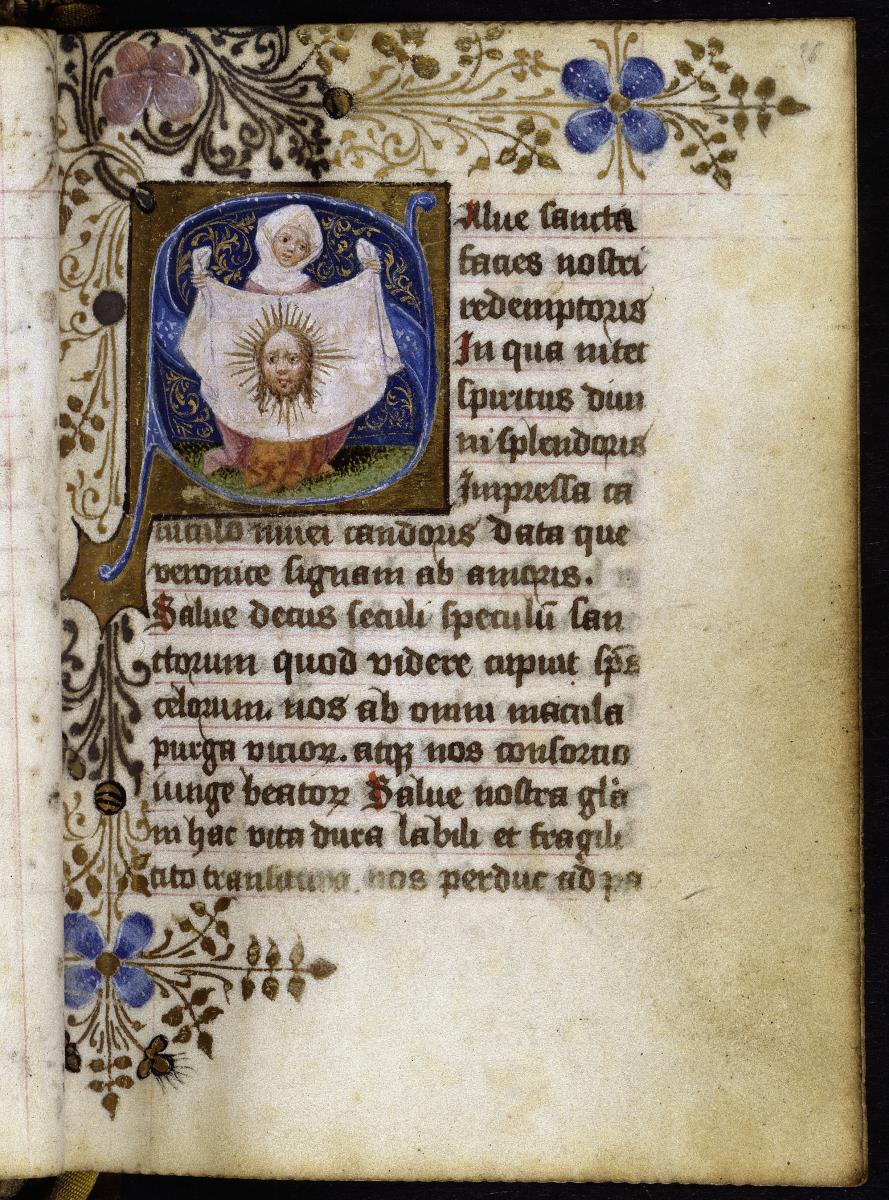 Salue sancta
facies nostri
redemptoris
In qua nitet
spiritus diui
ni splendoris
Impressa pa
niculo niuei candoris data que
veronice signam ab amoris.
Salue decus seculi speculū san
ctorum quod videre cupiūt sp̄s
celorum. nos ab omni macula
purga vicioꝝ. atqꝫ nos consorcio
iunge beatoꝝ Salue nostra gl̄a
in hac vita dura labili et fragili
cito transitura. nos perduc ad pa